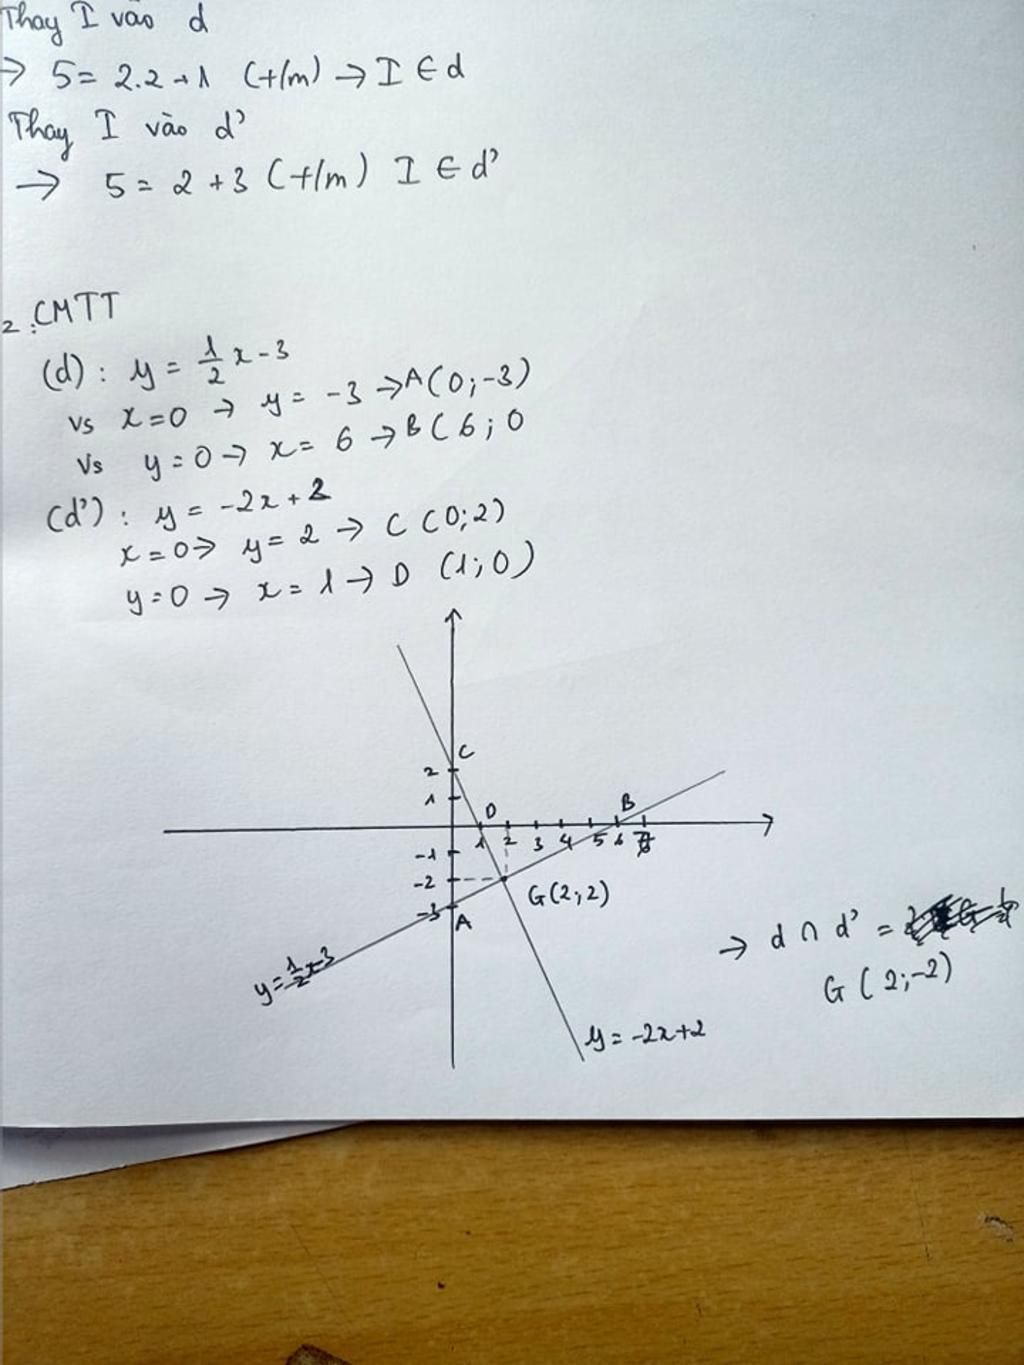 Thay I vào d
→ 5 = 2.2+1 (t/m) → I ∈ d
Thay I vào d'
→ 5 = 2 + 3 (t/m) I ∈ d'
2. CMTT
(d) : y = 1/2 x - 3
vs x = 0 → y = -3 → A(0;-3)
Vs y = 0 → x = 6 → B(6;0
(d') : y = -2x + 2
x = 0 → y = 2 → C (0;2)
y = 0 → x = 1 → D (1;0)
C
2
1
D
B
1 2 3 4 5 6
-1
-2
G(2;2)
-3
A
y = 1/2 x-3
→ d ∩ d' =
G (2;-2)
y = -2x+2